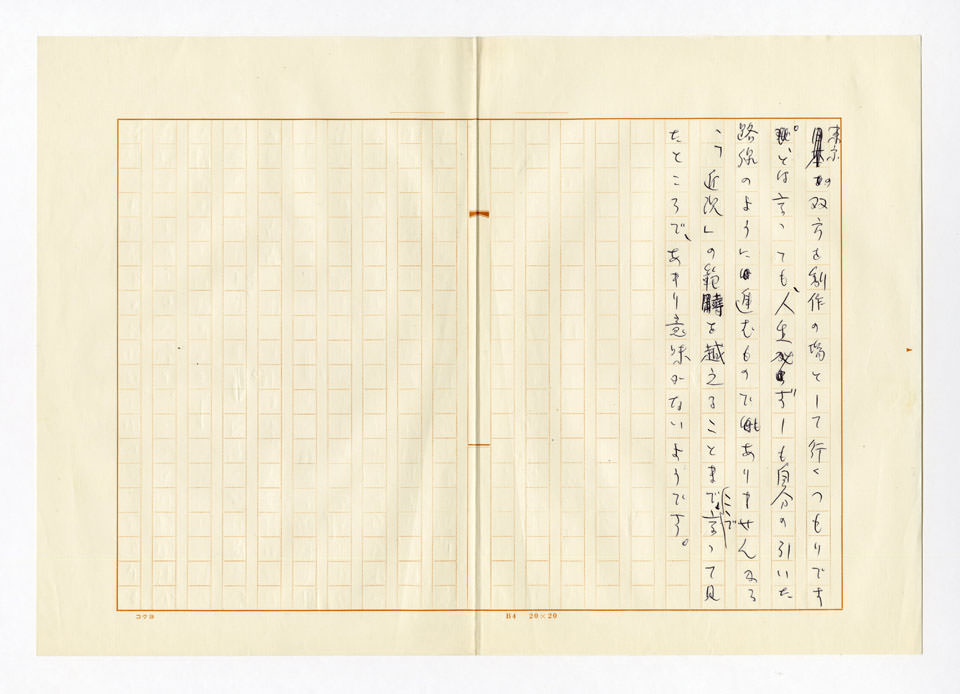 東京
の双方を創作の場として行くつもりです
。とは言っても、人生必ずしも自分の引いた
路線のように進むものでもありませんから
、「近況」の範疇を越えることまでここで言って見
たところで、あまり意味がないようです。
B4 20×20
コクヨ